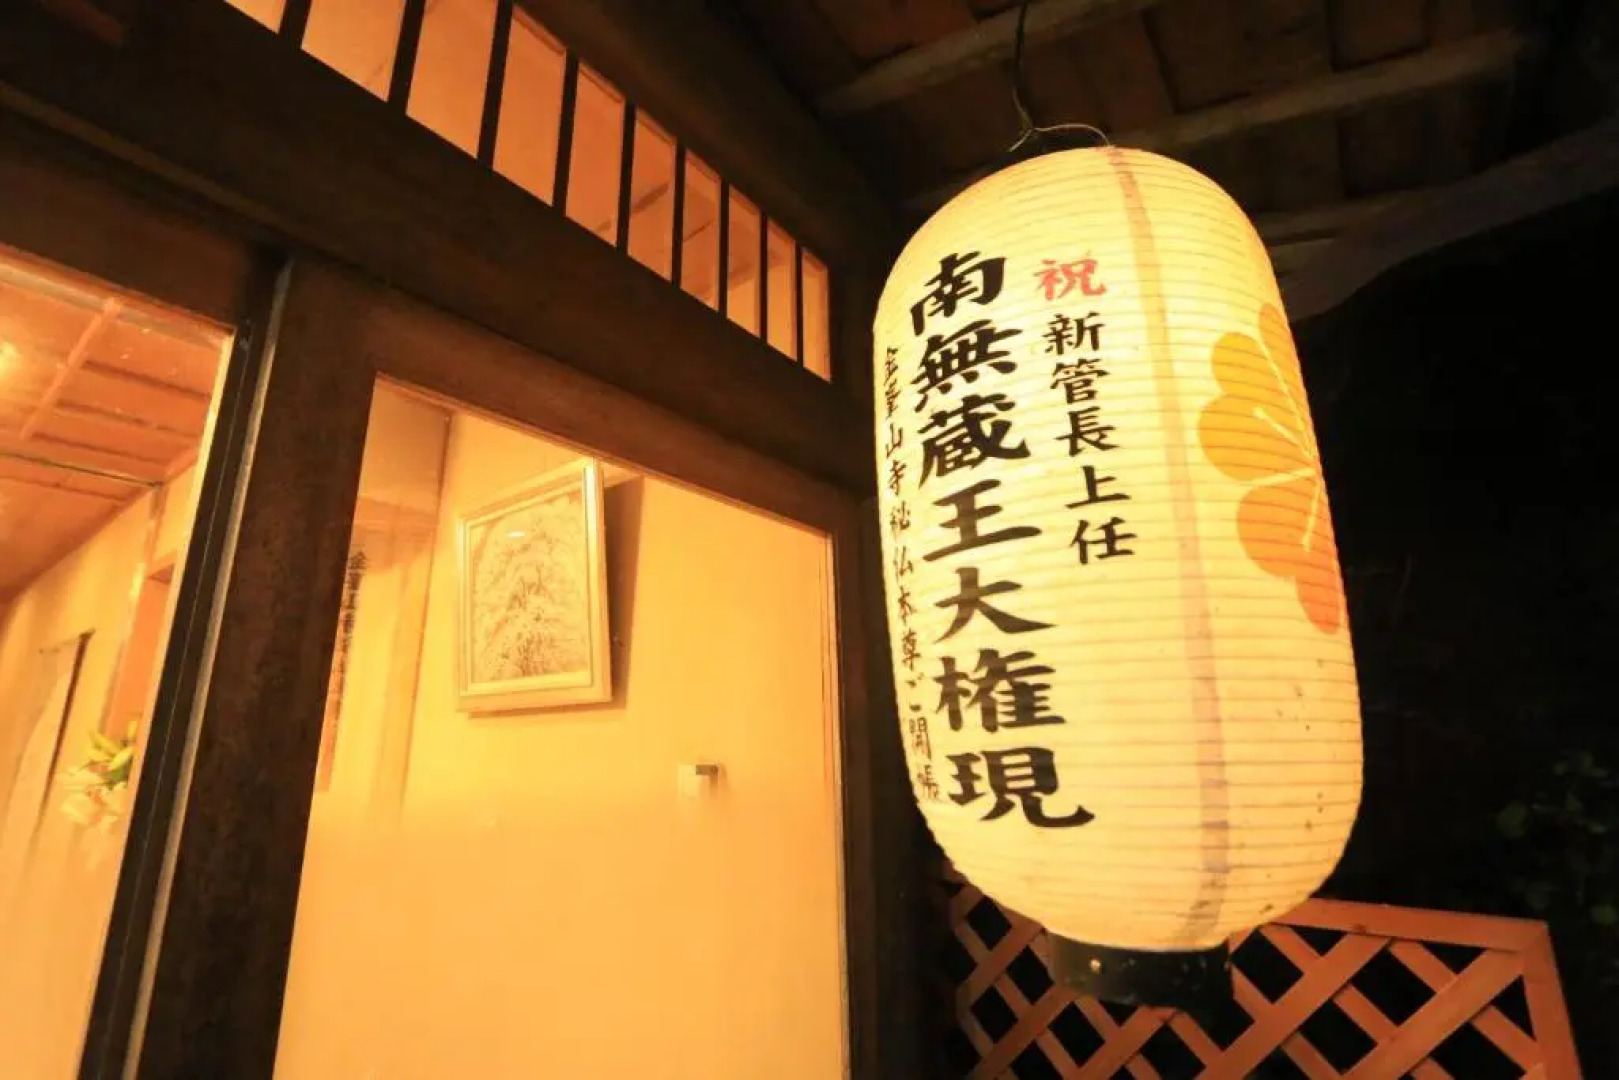 祝新管長上任
南無蔵王大権現
金峯山寺秘仏本尊ご開帳